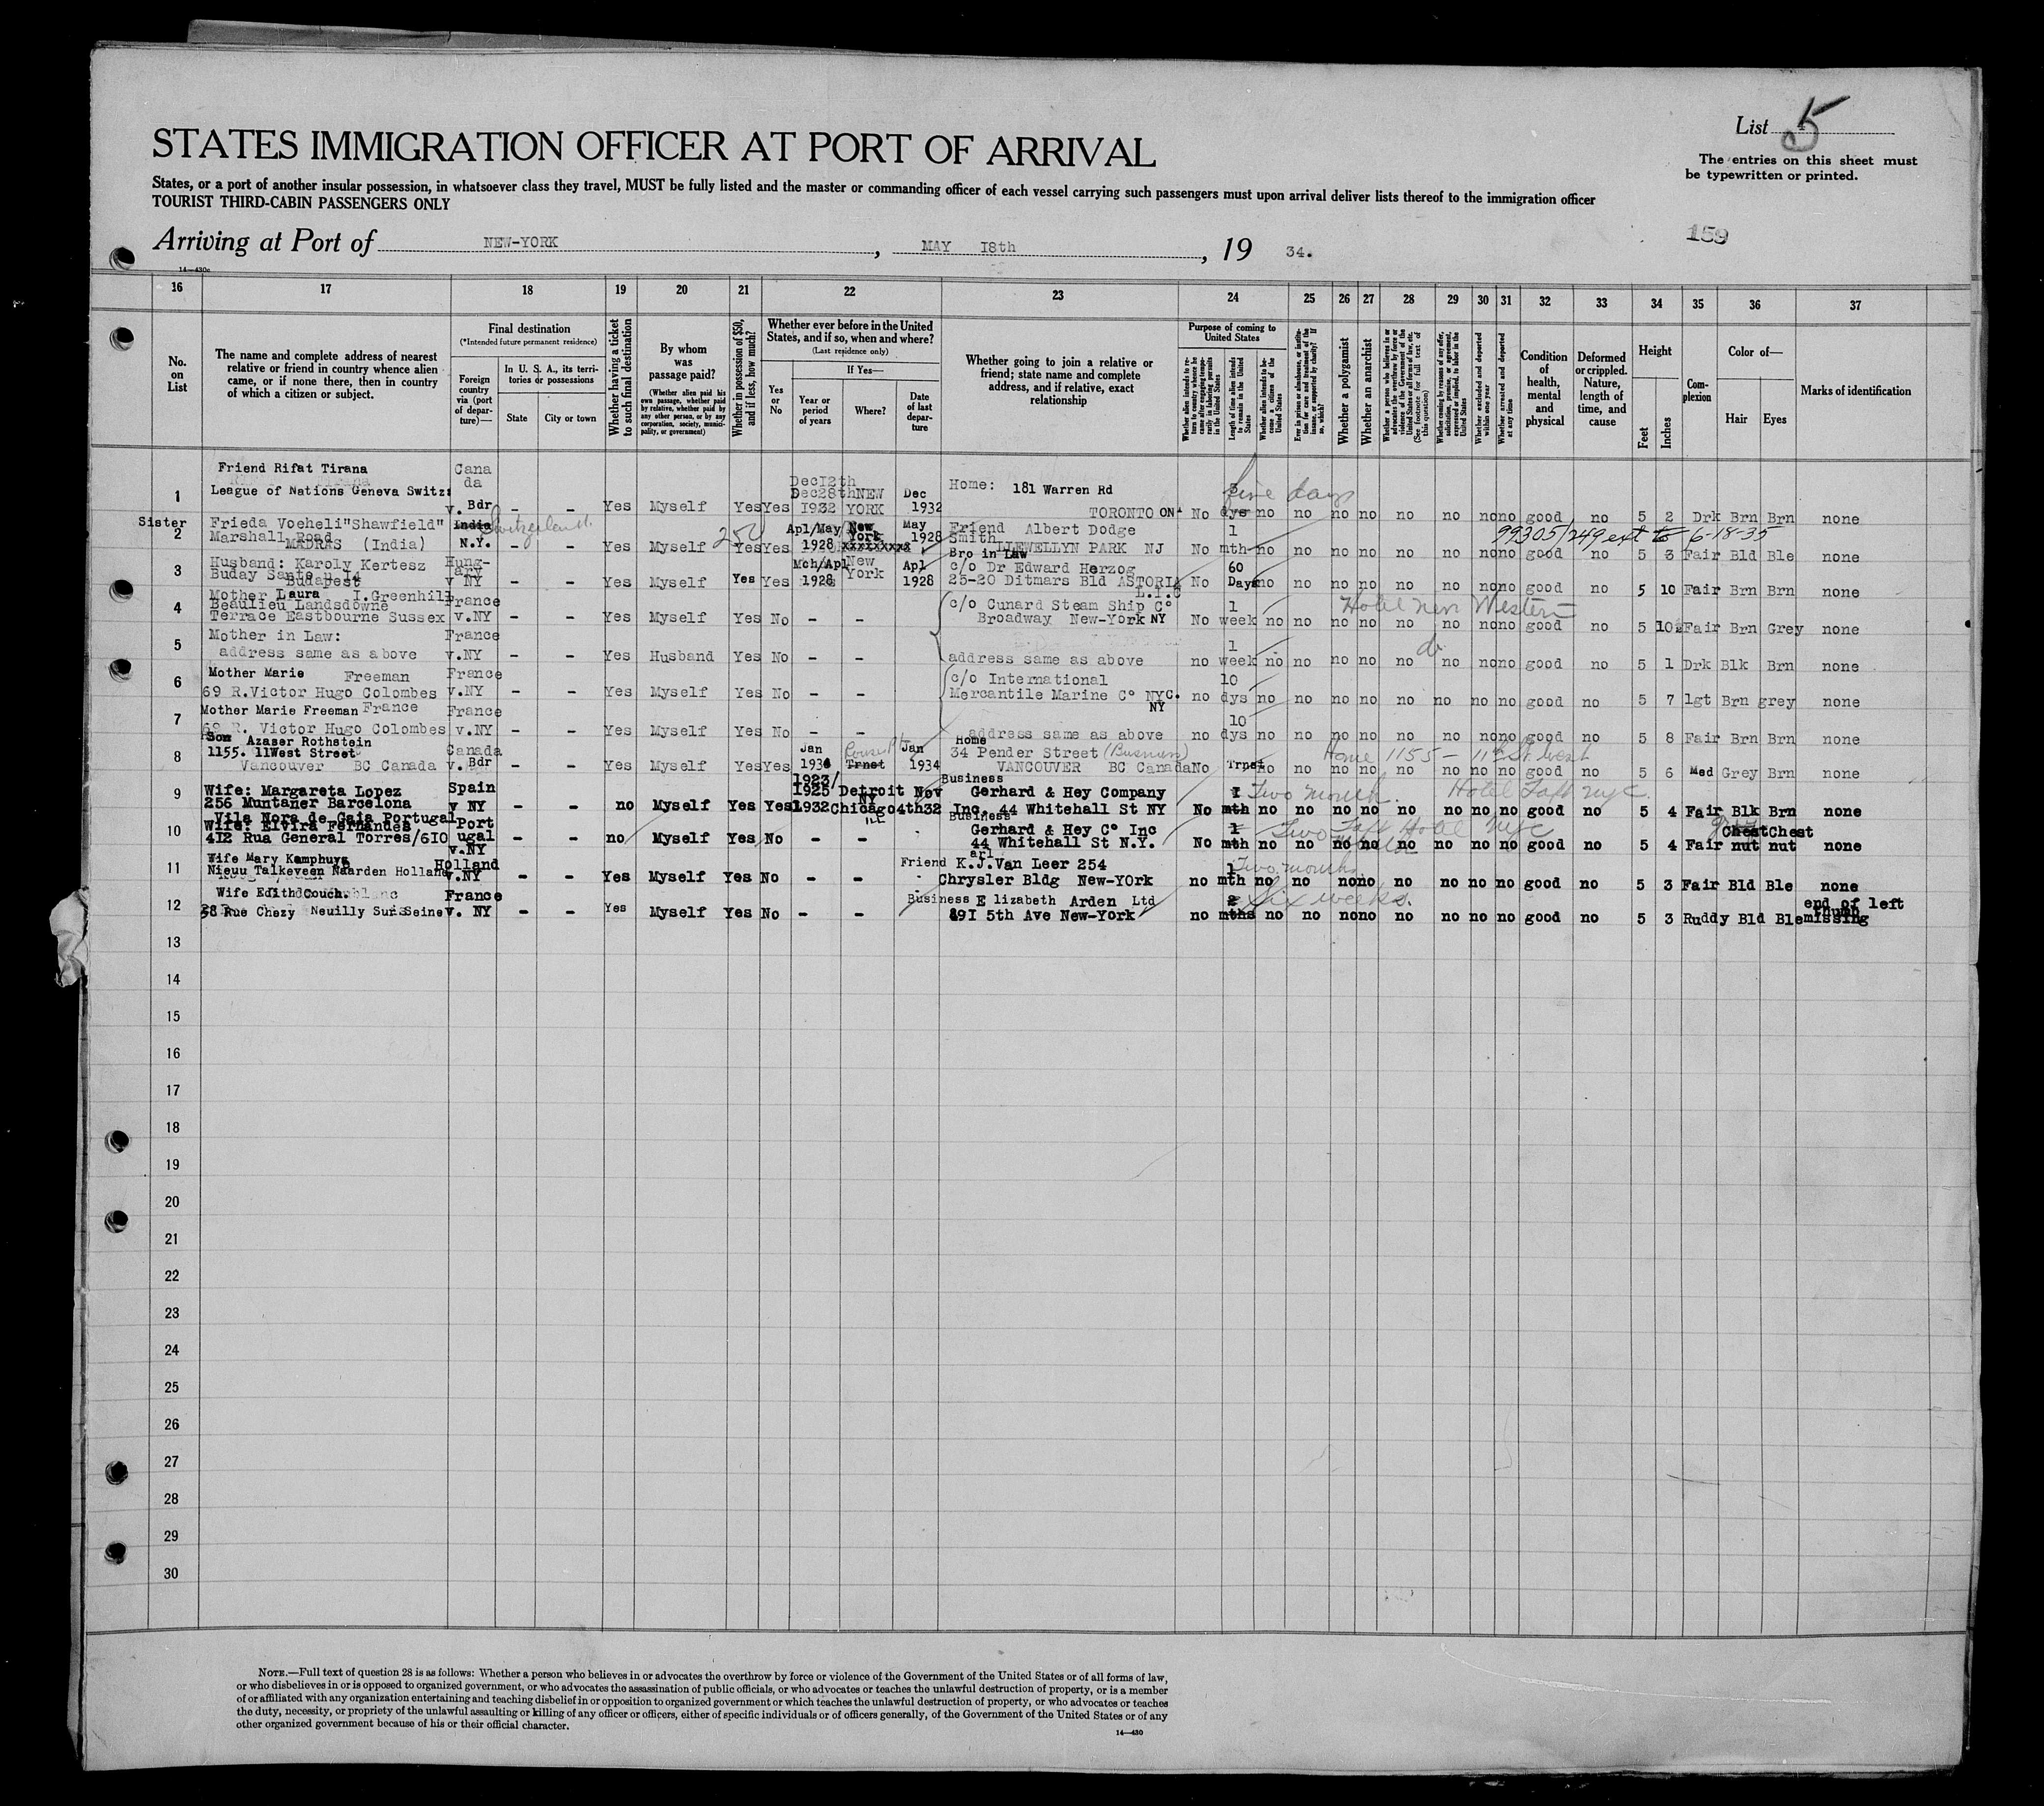 List 5
The entries on this sheet must
be typewritten or printed.
STATES IMMIGRATION OFFICER AT PORT OF ARRIVAL
States, or a port of another insular possession, in whatsoever class they travel, MUST be fully listed and the master or commanding officer of each vessel carrying such passengers must upon arrival deliver lists thereof to the immigration officer
TOURIST THIRD-CABIN PASSENGERS ONLY
Arriving at Port of NEW-YORK, MAY 18th, 19 34.
159
14—430c
16 17 18 19 20 21 22 23 24 25 26 27 28 29 30 31 32 33 34 35 36 37
No. on List
The name and complete address of nearest relative or friend in country whence alien came, or if none there, then in country of which a citizen or subject.
Final destination
(*Intended future permanent residence)
Foreign country via (port of departure)—
In U. S. A., its territories or possessions
State
City or town
Whether having a ticket to such final destination
By whom was passage paid?
(Whether alien paid his own passage, whether paid by relative, whether paid by any other person, or by any corporation, society, municipality, or government)
Whether in possession of $50, and if less, how much?
Whether ever before in the United States, and if so, when and where?
(Last residence only)
Yes or No
If Yes—
Year or period of years
Where?
Date of last departure
Whether going to join a relative or friend; state name and complete address, and if relative, exact relationship
Purpose of coming to United States
Whether alien intends to return to country whence he came after engaging temporarily in laboring pursuits in the United States
Length of time alien intends to remain in the United States
Whether alien intends to become a citizen of the United States
Ever in prison or almshouse, or institution for care and treatment of the insane, or supported by charity? If so, which?
Whether a polygamist
Whether an anarchist
Whether a person who believes in or advocates the overthrow by force or violence of the Government of the United States or all forms of law, etc. (See footnote for full text of this question)
Whether coming by reasons of any offer, solicitation, promise, or agreement, expressed or implied, to labor in the United States
Whether excluded and deported within one year
Whether arrested and deported at any time
Condition of health, mental and physical
Deformed or crippled. Nature, length of time, and cause
Height
Feet
Inches
Complexion
Color of—
Hair
Eyes
Marks of identification
1 Friend Rifat Tirana
League of Nations Geneva Switz:
Cana da v. Bdr - - Yes Myself Yes Yes Dec12th Dec28th 1932 NEW YORK Dec 1932 Home: 181 Warren Rd TORONTO ON No five days dys no no no no no no no no good no 5 2 Drk Brn Brn none
2 Sister Frieda Voeheli "Shawfield"
Marshall Road
MADRAS (India)
India Switzerland N.Y. - - Yes Myself 250 Yes Yes Apl/May 1928 New York xxxxxxxxx May 1928 Friend Albert Dodge Smith LLEWELLYN PARK NJ No 1 mth no no no no no no no no good no 5 3 Fair Bld Ble none
99305/249 ext to 6-18-35
3 Husband: Karoly Kertesz
Buday Santo u 14
Budapest
Hungary v NY - - Yes Myself Yes Yes Mch/Apl 1928 New York Apl 1928 Bro in Law c/o Dr Edward Herzog 25-20 Ditmars Bld ASTORIA L.I.C No 60 Days no no no no no no no no good no 5 10 Fair Brn Brn none
4 Mother Laura I.Greenhill
Beaulieu Landsdowne
Terrace Eastbourne Sussex
France v.NY - - Yes Myself Yes No - - c/o Cunard Steam Ship Co Broadway New-York NY No 1 week no no no no no no no no good no 5 10½ Fair Brn Grey none
Hotel New Western
5 Mother in Law:
address same as above
France v.NY - - Yes Husband Yes No - - address same as above no 1 week no no no no no no no no good no 5 1 Drk Blk Brn none
do
6 Mother Marie Freeman
69 R.Victor Hugo Colombes
France
France v.NY - - Yes Myself Yes No - - c/o International Mercantile Marine Co NYC. NY no 10 dys no no no no no no no no good no 5 7 lgt Brn grey none
7 Mother Marie Freeman
69 R. Victor Hugo Colombes
France v.NY - - Yes Myself Yes No - - address same as above no 10 dys no no no no no no no no good no 5 8 Fair Brn Brn none
8 Son Azaser Rothstein
1155. 11West Street
Vancouver BC Canada
Canada v. Bdr - - Yes Myself Yes Yes Jan 1934 Trnst Jan 1934 Home 34 Pender Street (Business) VANCOUVER BC Canada No Trnst no no no no no no no no good no 5 6 Med Grey Brn none
Home 1155 - 11th St. West
9 Wife: Margareta Lopez
256 Muntaner Barcelona
Spain v NY - - no Myself Yes Yes 1923/1925 1932 Detroit NY Chicago ILL Nov 4th32 Business Gerhard & Hey Company Inc. 44 Whitehall St NY No 1 mth no no no no no no no no good no 5 4 Fair Blk Brn none
Two month. Hotel Taft NYC.
10 Vila Nora de Gaia Portugal
Wife: Elvira Fernandes
412 Rua General Torres/610
Portugal v.NY - - no Myself Yes No - - Business Gerhard & Hey Co Inc 44 Whitehall St N.Y. No 1 mth no no no no no no no no good no 5 4 Fair Chestnut Chestnut none
Two Taft Hotel NYC
11 Wife Mary Kamphuys
Nieuu Talkeveen Naarden Holland
Holland v.NY - - Yes Myself Yes No - - Friend Karl J.Van Leer 254 Chrysler Bldg New-YOrk no 1 mth no no no no no no no no good no 5 3 Fair Bld Ble none
Two months
12 Wife Edith Couch.
58 Rue Chezy Neuilly Sur Seine
France v. NY - - Yes Myself Yes No - - Business E lizabeth Arden Ltd 691 5th Ave New-York no 2 mths no no no no no no no no good no 5 3 Ruddy Bld Ble end of left thumb missing
Six weeks.
13
14
15
16
17
18
19
20
21
22
23
24
25
26
27
28
29
30
NOTE.—Full text of question 28 is as follows: Whether a person who believes in or advocates the overthrow by force or violence of the Government of the United States or of all forms of law,
or who disbelieves in or is opposed to organized government, or who advocates the assassination of public officials, or who advocates or teaches the unlawful destruction of property, or is a member
of or affiliated with any organization entertaining and teaching disbelief in or opposition to organized government or which teaches the unlawful destruction of property, or who advocates or teaches
the duty, necessity, or propriety of the unlawful assaulting or killing of any officer or officers, either of specific individuals or of officers generally, of the Government of the United States or of any
other organized government because of his or their official character.
14—430